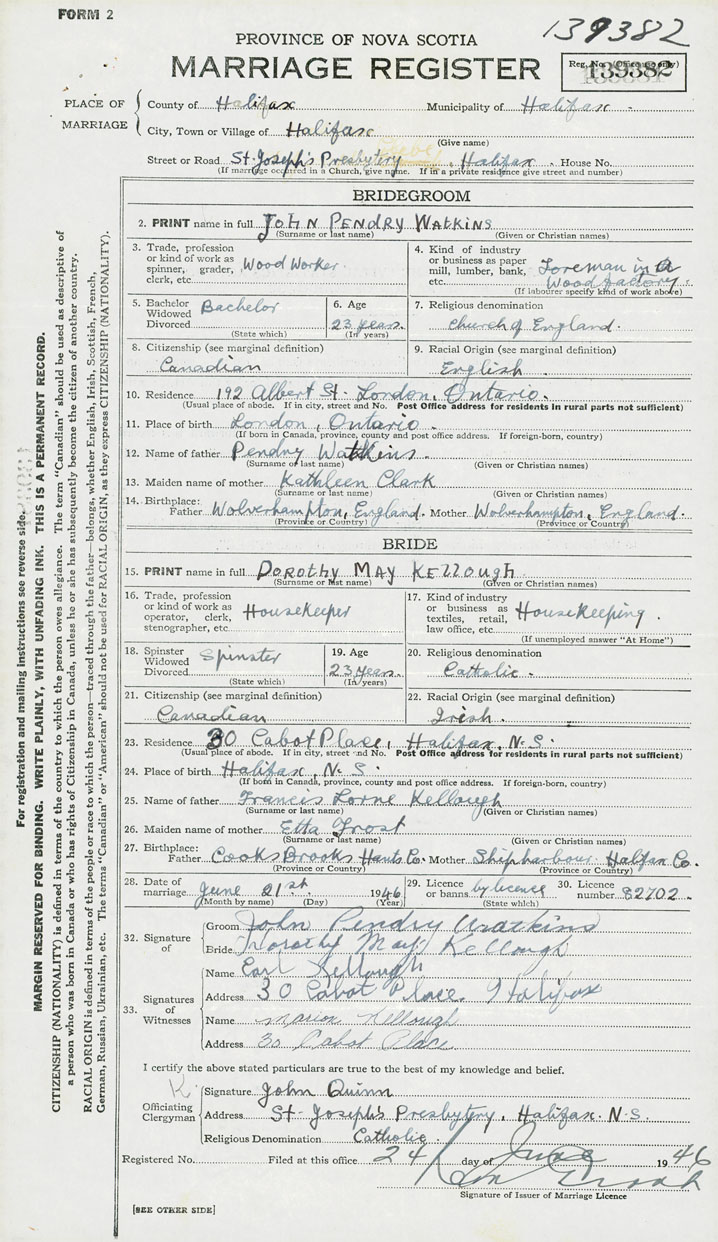 FORM 2
139382
PROVINCE OF NOVA SCOTIA
MARRIAGE REGISTER
Reg. No. (Office use only)
139382
PLACE OF MARRIAGE
County of Halifax Municipality of Halifax
City, Town or Village of Halifax
(Give name)
Street or Road St. Joseph's Presbytery, Halifax. House No.
(If marriage occurred in a Church, give name. If in a private residence give street and number)
BRIDEGROOM
2. PRINT name in full JOHN PENDRY WATKINS
(Surname or last name) (Given or Christian names)
3. Trade, profession or kind of work as spinner, grader, clerk, etc. Wood Worker.
4. Kind of industry or business as paper mill, lumber, bank, etc. Foreman in a Wood factory.
(If labourer specify kind of work above)
5. Bachelor Widowed Divorced Bachelor
(State which)
6. Age 23 years.
(In years)
7. Religious denomination
Church of England.
8. Citizenship (see marginal definition)
Canadian
9. Racial Origin (see marginal definition)
English.
10. Residence 192 Albert St. London, Ontario.
(Usual place of abode. If in city, street and No. Post Office address for residents in rural parts not sufficient)
11. Place of birth London, Ontario.
(If born in Canada, province, county and post office address. If foreign-born, country)
12. Name of father Pendry Watkins.
(Surname or last name) (Given or Christian names)
13. Maiden name of mother Kathleen Clark
(Surname or last name) (Given or Christian names)
14. Birthplace: Father Wolverhampton, England. Mother Wolverhampton, England.
(Province or Country) (Province or Country)
BRIDE
15. PRINT name in full DOROTHY MAY KELLOUGH
(Surname or last name) (Given or Christian names)
16. Trade, profession or kind of work as operator, clerk, stenographer, etc. Housekeeper
17. Kind of industry or business as textiles, retail, law office, etc. Housekeeping.
(If unemployed answer "At Home")
18. Spinster Widowed Divorced Spinster
(State which)
19. Age 23 years.
(In years)
20. Religious denomination
Catholic.
21. Citizenship (see marginal definition)
Canadian
22. Racial Origin (see marginal definition)
Irish.
23. Residence 30 Cabot Place, Halifax, N.S.
(Usual place of abode. If in city, street and No. Post Office address for residents in rural parts not sufficient)
24. Place of birth Halifax, N.S.
(If born in Canada, province, county and post office address. If foreign-born, country)
25. Name of father Francis Lorne Kellough
(Surname or last name) (Given or Christian names)
26. Maiden name of mother Etta Frost
(Surname or last name) (Given or Christian names)
27. Birthplace: Father Cooks Brooks Hants Co. Mother Shipharbour Halifax Co.
(Province or Country) (Province or Country)
28. Date of marriage June 21st 1946
(Month by name) (Day) (Year)
29. Licence or banns by licence
(State which)
30. Licence number 82702.
32. Signature of
Groom John Pendry Watkins
Bride Dorothy May Kellough
33. Signatures of Witnesses
Name Earl Kellough
Address 30 Cabot Place Halifax
Name Marion Kellough
Address 30 Cabot Place
I certify the above stated particulars are true to the best of my knowledge and belief.
Officiating Clergyman
Signature John Quinn
Address St. Joseph's Presbytery, Halifax. N.S.
Religious Denomination Catholic.
Registered No. Filed at this office 24 day of June 1946
Signature of Issuer of Marriage Licence
[SEE OTHER SIDE]
For registration and mailing instructions see reverse side.
MARGIN RESERVED FOR BINDING. WRITE PLAINLY, WITH UNFADING INK. THIS IS A PERMANENT RECORD.
CITIZENSHIP (NATIONALITY) is defined in terms of the country to which the person owes allegiance. The term "Canadian" should be used as descriptive of
a person who was born in Canada or who has rights of Citizenship in Canada, unless he or she has subsequently become the citizen of another country.
RACIAL ORIGIN is defined in terms of the people or race to which the person—traced through the father—belongs, whether English, Irish, Scottish, French,
German, Russian, Ukrainian, etc. The terms "Canadian" or "American" should not be used for RACIAL ORIGIN, as they express CITIZENSHIP (NATIONALITY).